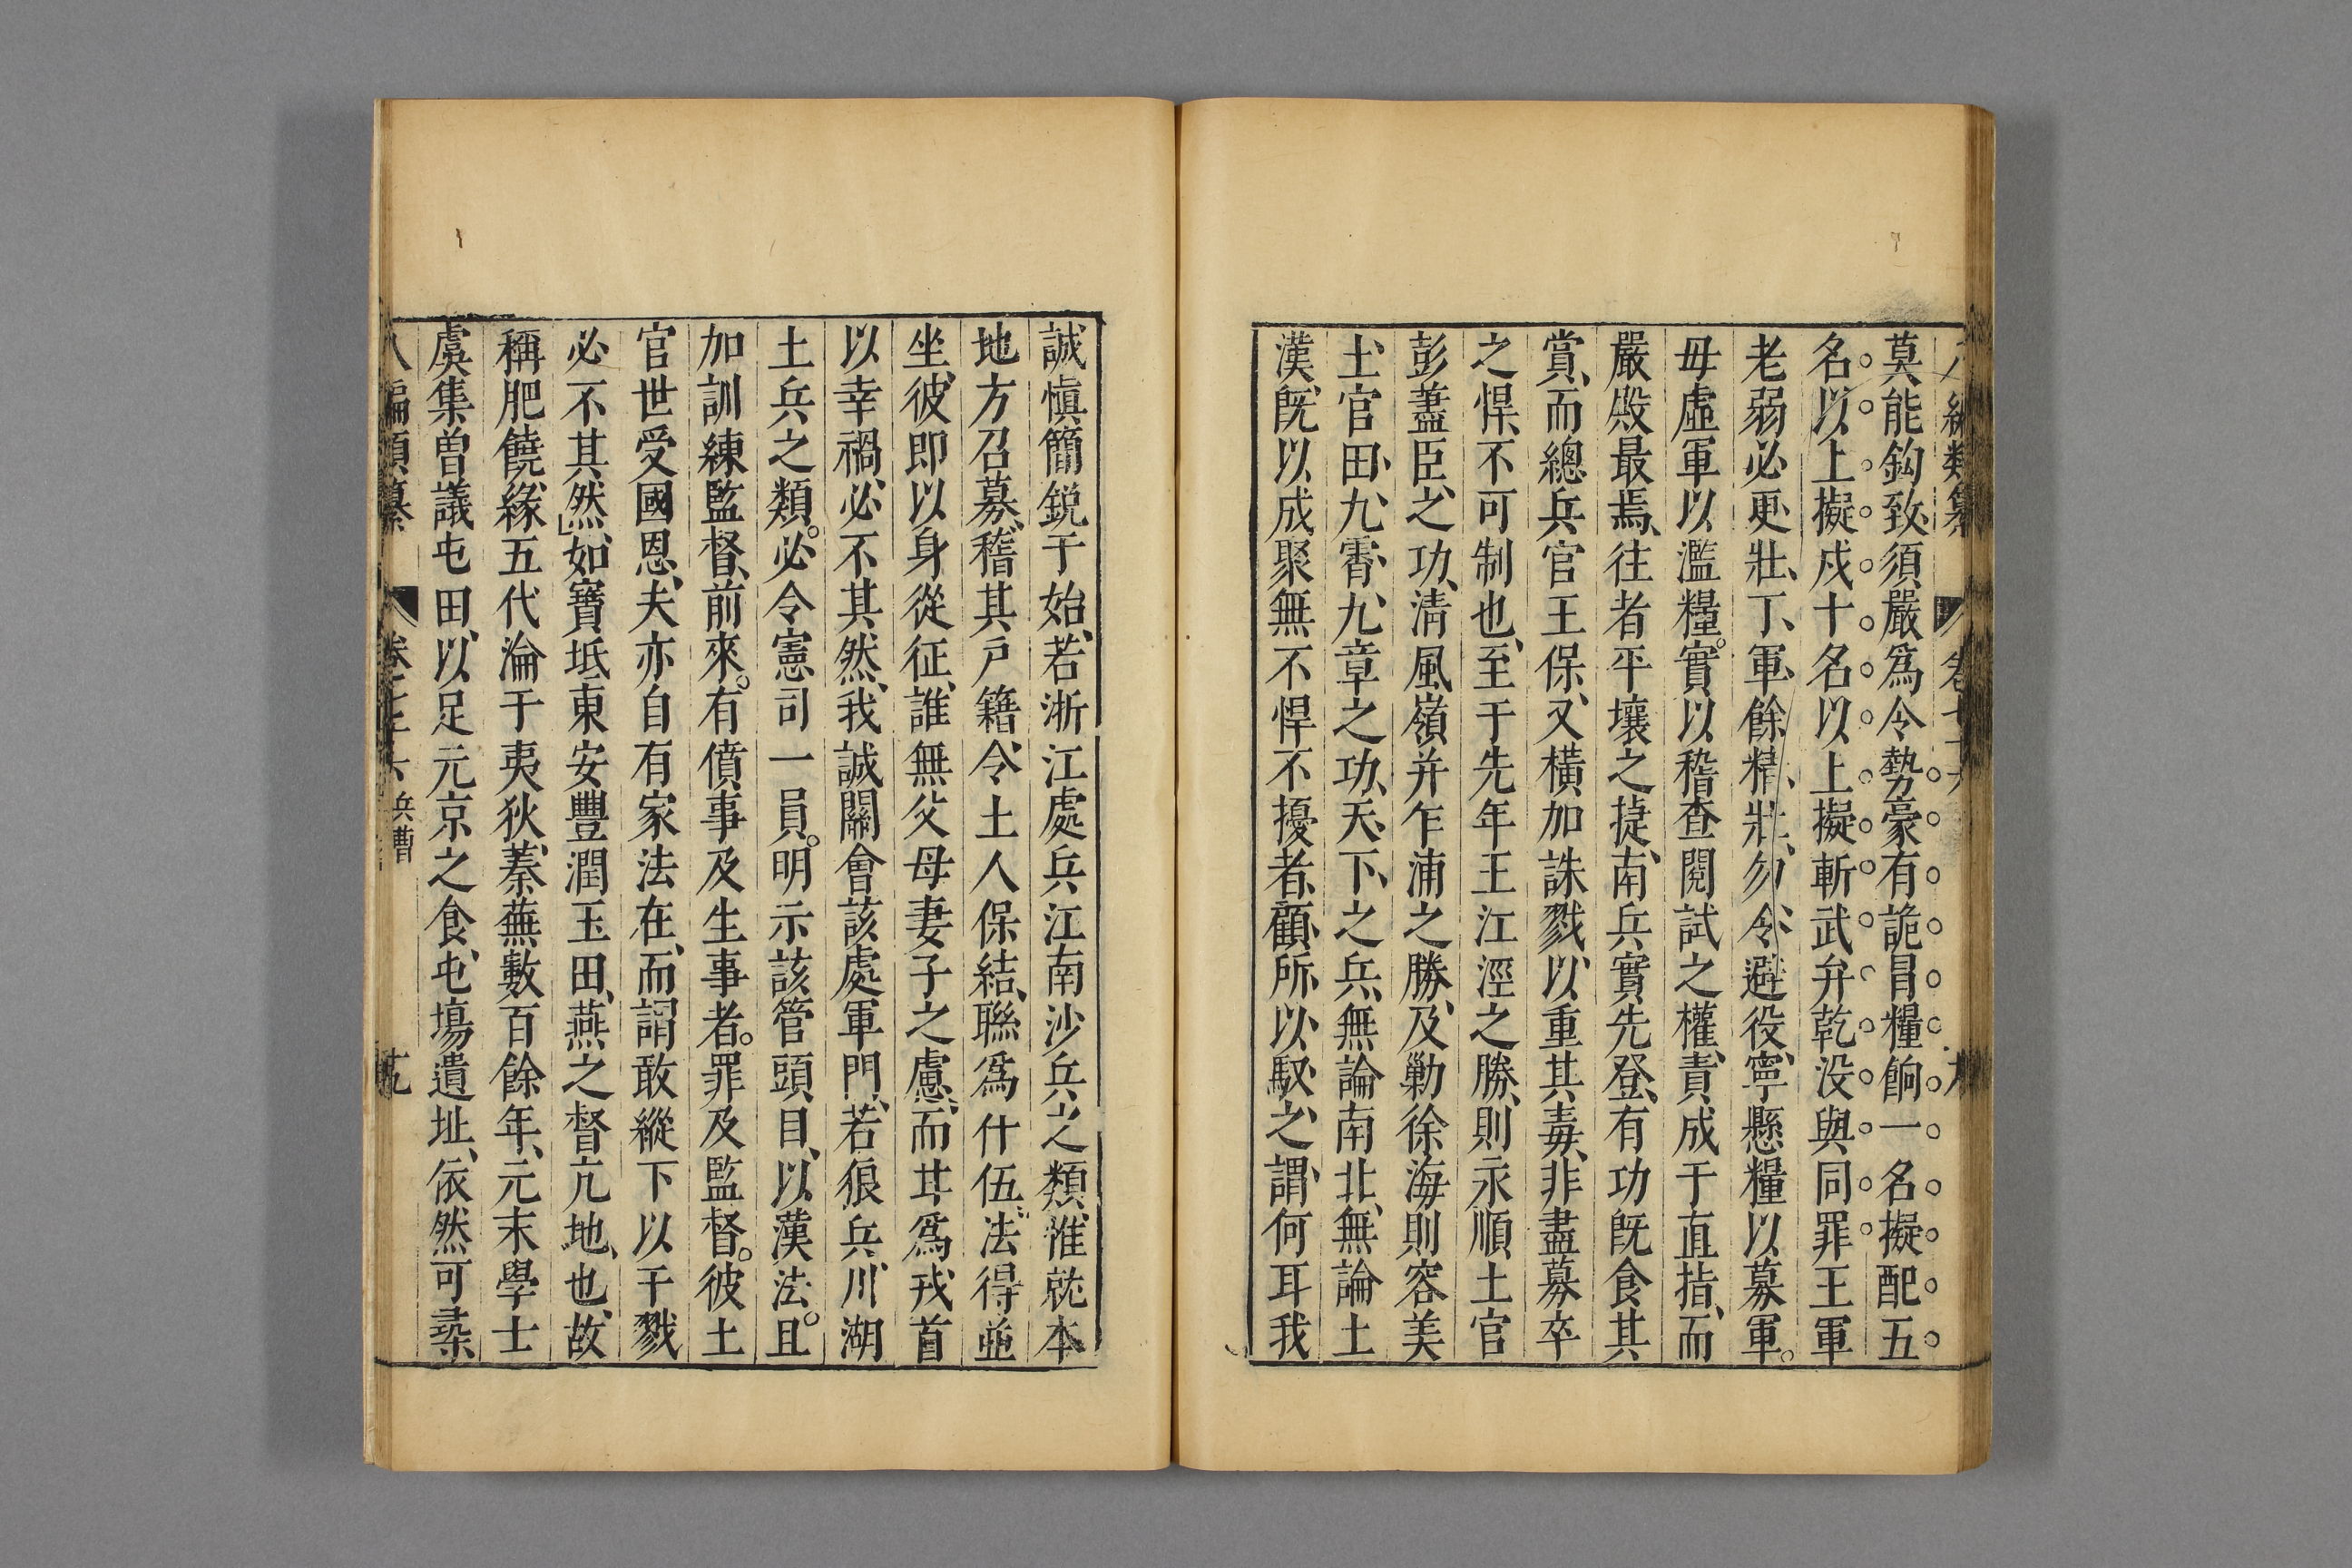 莫能鈎致須嚴爲令勢豪有詭冒糧餉一名擬配五
名以上擬戍十名以上擬斬武弁乾没與同罪王軍
老弱必更壯丁軍餘精壯勿令避役寧懸糧以募軍
毋虛軍以濫糧實以稽查閱試之權責成于直指而
嚴殿最焉往者平壤之捷南兵實先登有功旣食其
賞而總兵官王保又橫加誅戮以重其毒非盡募卒
之悍不可制也至于先年王江涇之勝則永順土官
彭藎臣之功淸風嶺并乍浦之勝及勦徐海則容美
土官田九霄九章之功天下之兵無論南北無論土
漢旣以成聚無不悍不擾者顧所以馭之謂何耳我
誠愼簡銳于始若浙江處兵江南沙兵之類惟就本
地方召募稽其戶籍令土人保結聯爲什伍法得並
坐彼即以身從征誰無父母妻子之慮而其爲戎首
以幸禍必不其然我誠關會該處軍門若狼兵川湖
土兵之類必令憲司一員明示該管頭目以漢法且
加訓練監督前來有僨事及生事者罪及監督彼土
官世受國恩夫亦自有家法在而謂敢縱下以干戮
必不其然如寶坻東安豐潤玉田燕之督亢地也故
稱肥饒緣五代淪于夷狄蓁蕪數百餘年元末學士
虞集曾議屯田以足元京之食屯塲遺址依然可尋
八編類纂 卷七十六 兵曹